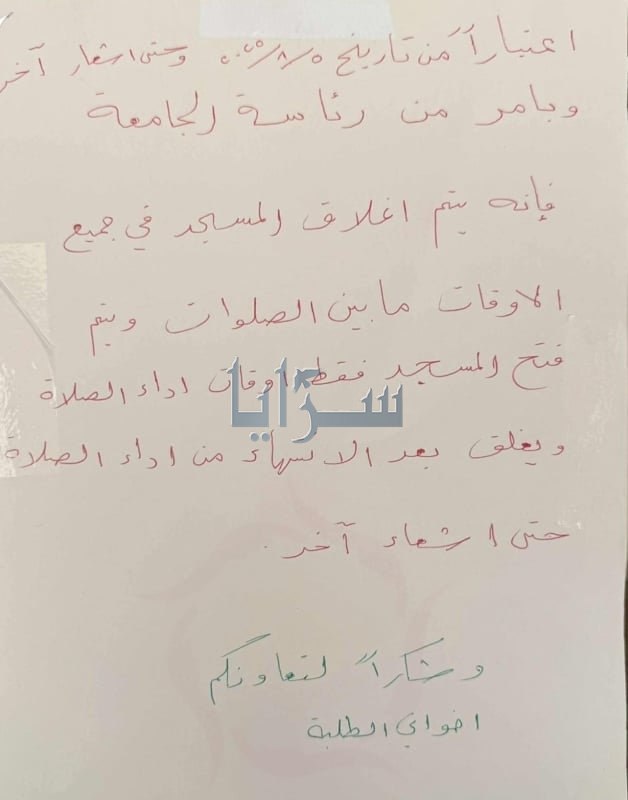 اعتباراً من تاريخ ٢٠٢٥/٨/٥ وحتى اشعار آخر
وبامر من رئاسة الجامعة
فإنه يتم اغلاق المسجد في جميع
الاوقات ما بين الصلوات ويتم
فتح المسجد فقط اوقات اداء الصلاة
سرايا
ويغلق بعد الانتهاء من اداء الصلاة
حتى اشعار آخر.
وشكراً لتعاونكم
اخواني الطلبة